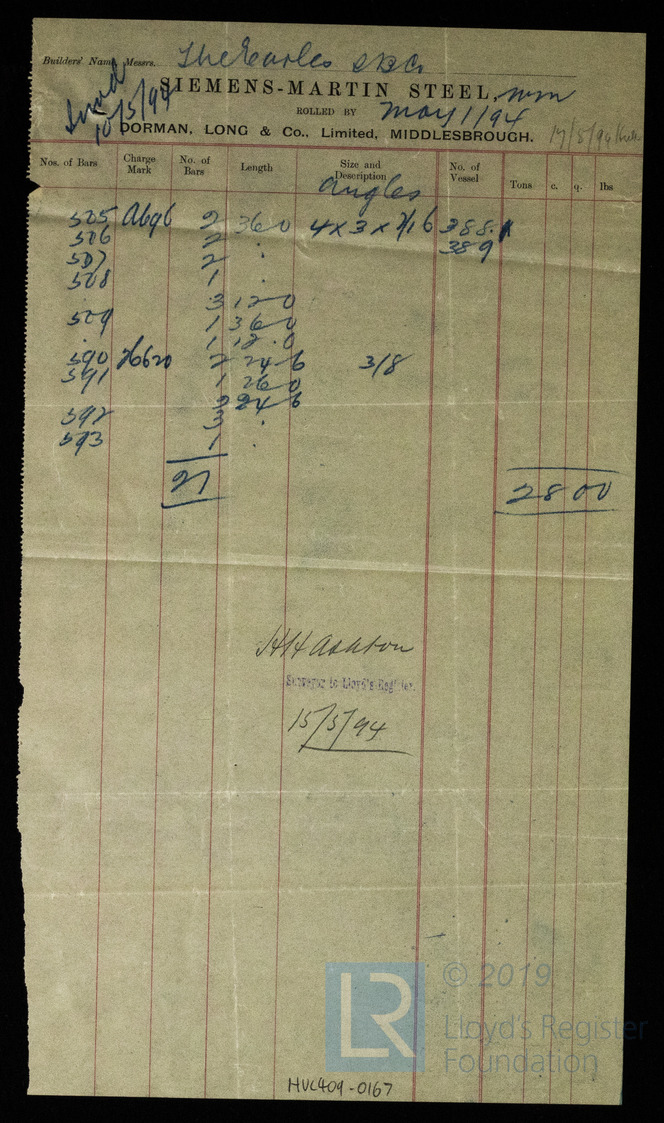 Builders' Name, Messrs. The Earles SBCo
SIEMENS-MARTIN STEEL,
ROLLED BY May 1/94
10/5/94
DORMAN, LONG & Co., Limited, MIDDLESBROUGH.
17/5/94
Nos. of Bars Charge Mark No. of Bars Length Size and Description No. of Vessel Tons c. q. lbs
Angles
505 A696 2 36 0 4 x 3 x 7/16 388.
506 2 . 389
507 2 .
508 1 .
3 12 0
509 1 36 0
. 1 12.0
590 2 24 6 3/8
591 1 26 0
24 6
592 3 .
593 1 .
21 28 00
HH Ashton
Surveyor to Lloyd's Register.
15/5/94
LR © 2019
Lloyd's Register
Foundation
HVC409-0167